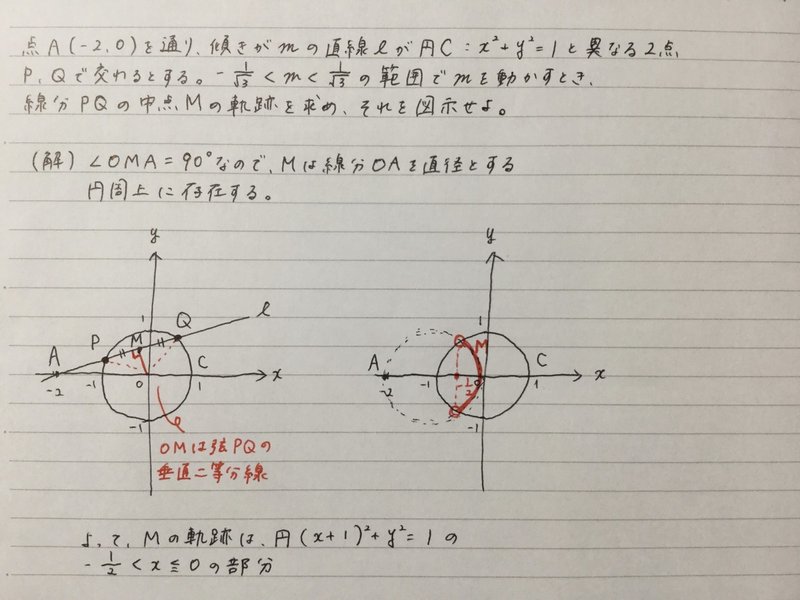 点A(-2,0)を通り、傾きがmの直線ℓが円C：x²+y²=1と異なる2点
P,Qで交わるとする。-1/√3<m<1/√3の範囲でmを動かすとき、
線分PQの中点Mの軌跡を求め、それを図示せよ。
(解) ∠OMA=90°なので、Mは線分OAを直径とする
円周上に存在する。
y
1
ℓ
Q
M
P
A
C
-2
-1
0
1
x
-1
OMは弦PQの
垂直二等分線
y
1
M
A
C
-2
-1
-1/2
0
1
x
-1
よって、Mの軌跡は、円(x+1)²+y²=1の
-1/2<x≦0の部分